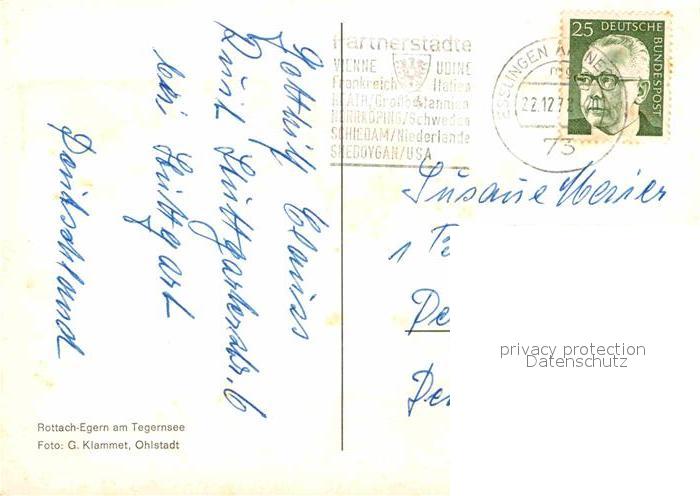 Gottlieb Clauss
Ruit Stuttgarterstr. 6
bei Stuttgart
Deutschland
Rottach-Egern am Tegernsee
Foto: G. Klammet, Ohlstadt
Partnerstädte
VIENNE UDINE
Frankreich Italien
NEATH/Großbritannien
NORRKÖPING/Schweden
SCHIEDAM/Niederlande
SHEBOYGAN/USA
ESSLINGEN AM NE
22.12.72
73
25 DEUTSCHE BUNDESPOST
Susanne Maier
1
De
privacy protection
Datenschutz